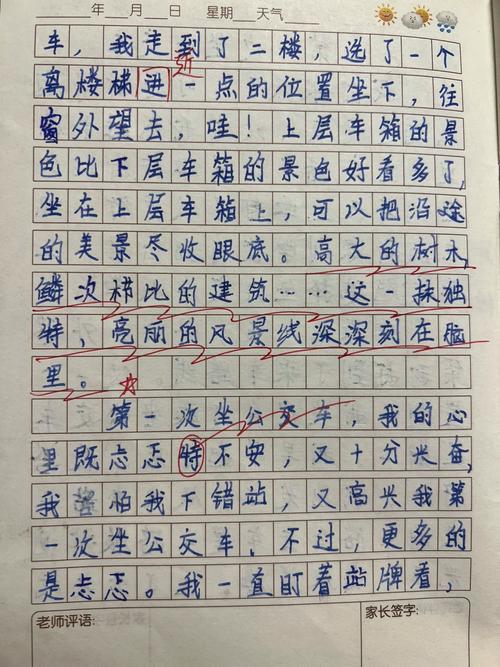 年 月 日 星期 天气
车，我走到了二楼，选了一个
近
离楼梯进一点的位置坐下，往
窗外望去，哇！上层车箱的景
色比下层车箱的景色好看多了，
坐在上层车箱上，可以把沿途
的美景尽收眼底。高大的树木，
鳞次栉比的建筑……这一抹独
特，亮丽的风景线深深刻在脑
里。
第一次坐公交车，我的心
里既忐忑特不安，又十分兴奋，
我怕我下错站，又高兴我第
一次坐公交车，不过，更多的
是忐忑。我一直盯着站牌看，
老师评语:
家长签字: